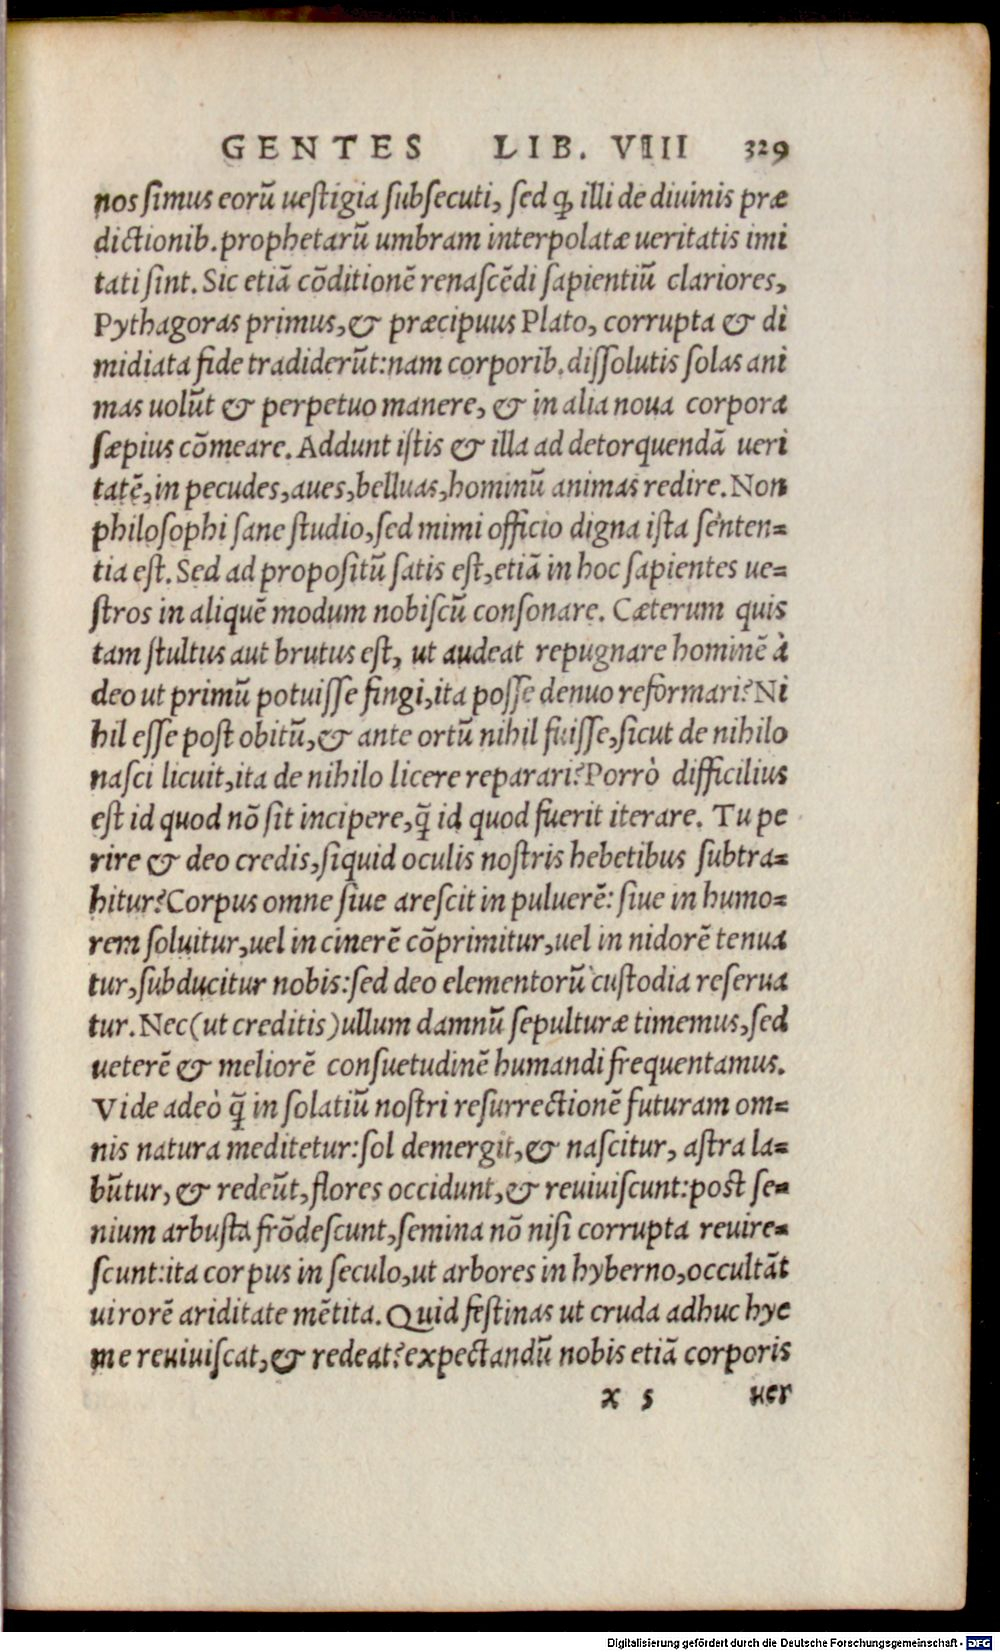 GENTES LIB. VIII 329
nos ſimus eorũ ueſtigia ſubſecuti, ſed ꝙ illi de diuinis præ
dictionib. prophetarũ umbram interpolatæ ueritatis imi
tati ſint. Sic etiã cõditionẽ renaſcẽdi ſapientiũ clariores,
Pythagoras primus, & præcipuus Plato, corrupta & di
midiata fide tradiderũt: nam corporib. diſſolutis ſolas ani
mas uolũt & perpetuo manere, & in alia noua corpora
ſæpius cõmeare. Addunt iſtis & illa ad detorquendã ueri
tatẽ, in pecudes, aues, belluas, hominũ animas redire. Non
philoſophi ſane ſtudio, ſed mimi officio digna iſta ſenten=
tia eſt. Sed ad propoſitũ ſatis eſt, etiã in hoc ſapientes ue=
ſtros in aliquẽ modum nobiſcũ conſonare. Cæterum quis
tam ſtultus aut brutus eſt, ut audeat repugnare hominẽ à
deo ut primũ potuiſſe fingi, ita poſſe denuo reformari? Ni
hil eſſe poſt obitũ, & ante ortũ nihil fuiſſe, ſicut de nihilo
naſci licuit, ita de nihilo licere reparari? Porrò difficilius
eſt id quod nõ ſit incipere, ꝗ̃ id quod fuerit iterare. Tu pe
rire & deo credis, ſiquid oculis noſtris hebetibus ſubtra=
hitur? Corpus omne ſiue areſcit in puluerẽ: ſiue in humo=
rem ſoluitur, uel in cinerẽ cõprimitur, uel in nidorẽ tenua
tur, ſubducitur nobis: ſed deo elementorũ cuſtodia reſerua
tur. Nec (ut creditis) ullum damnũ ſepulturæ timemus, ſed
ueterẽ & meliorẽ conſuetudinẽ humandi frequentamus.
Vide adeò ꝗ̃ in ſolatiũ noſtri reſurrectionẽ futuram om=
nis natura meditetur: ſol demergit, & naſcitur, aſtra la=
bũtur, & redeũt, flores occidunt, & reuiuiſcunt: poſt ſe=
nium arbuſta frõdeſcunt, ſemina nõ niſi corrupta reuire=
ſcunt: ita corpus in ſeculo, ut arbores in hyberno, occultãt
uirorẽ ariditate mẽtita. Quid feſtinas ut cruda adhuc hye
me reuiuiſcat, & redeat? expectandũ nobis etiã corporis
x 5 uer
Digitalisierung gefördert durch die Deutsche Forschungsgemeinschaft - DFG